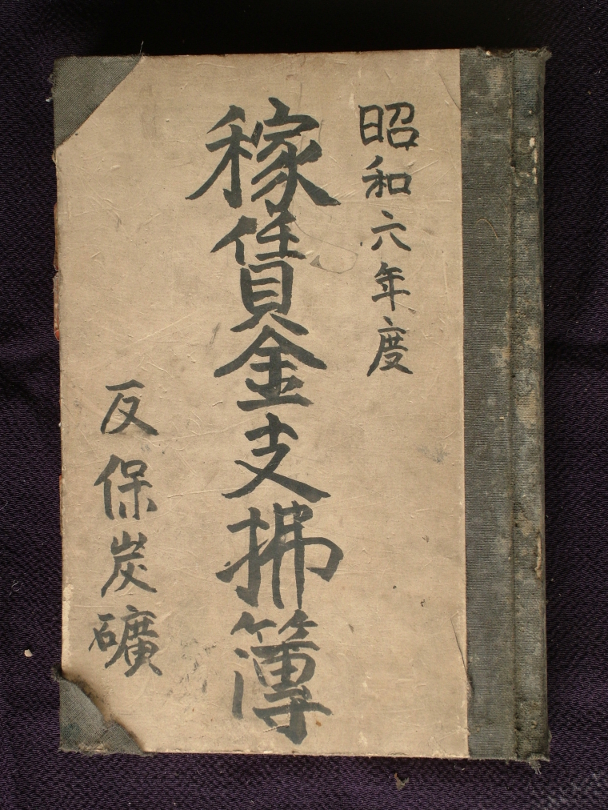 昭和六年度
稼賃金支拂簿
反保炭礦